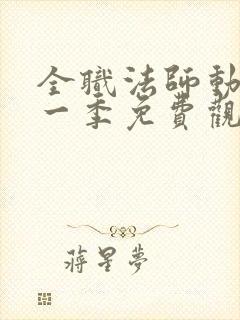 全職法師動
一季免費觀
蔣星夢